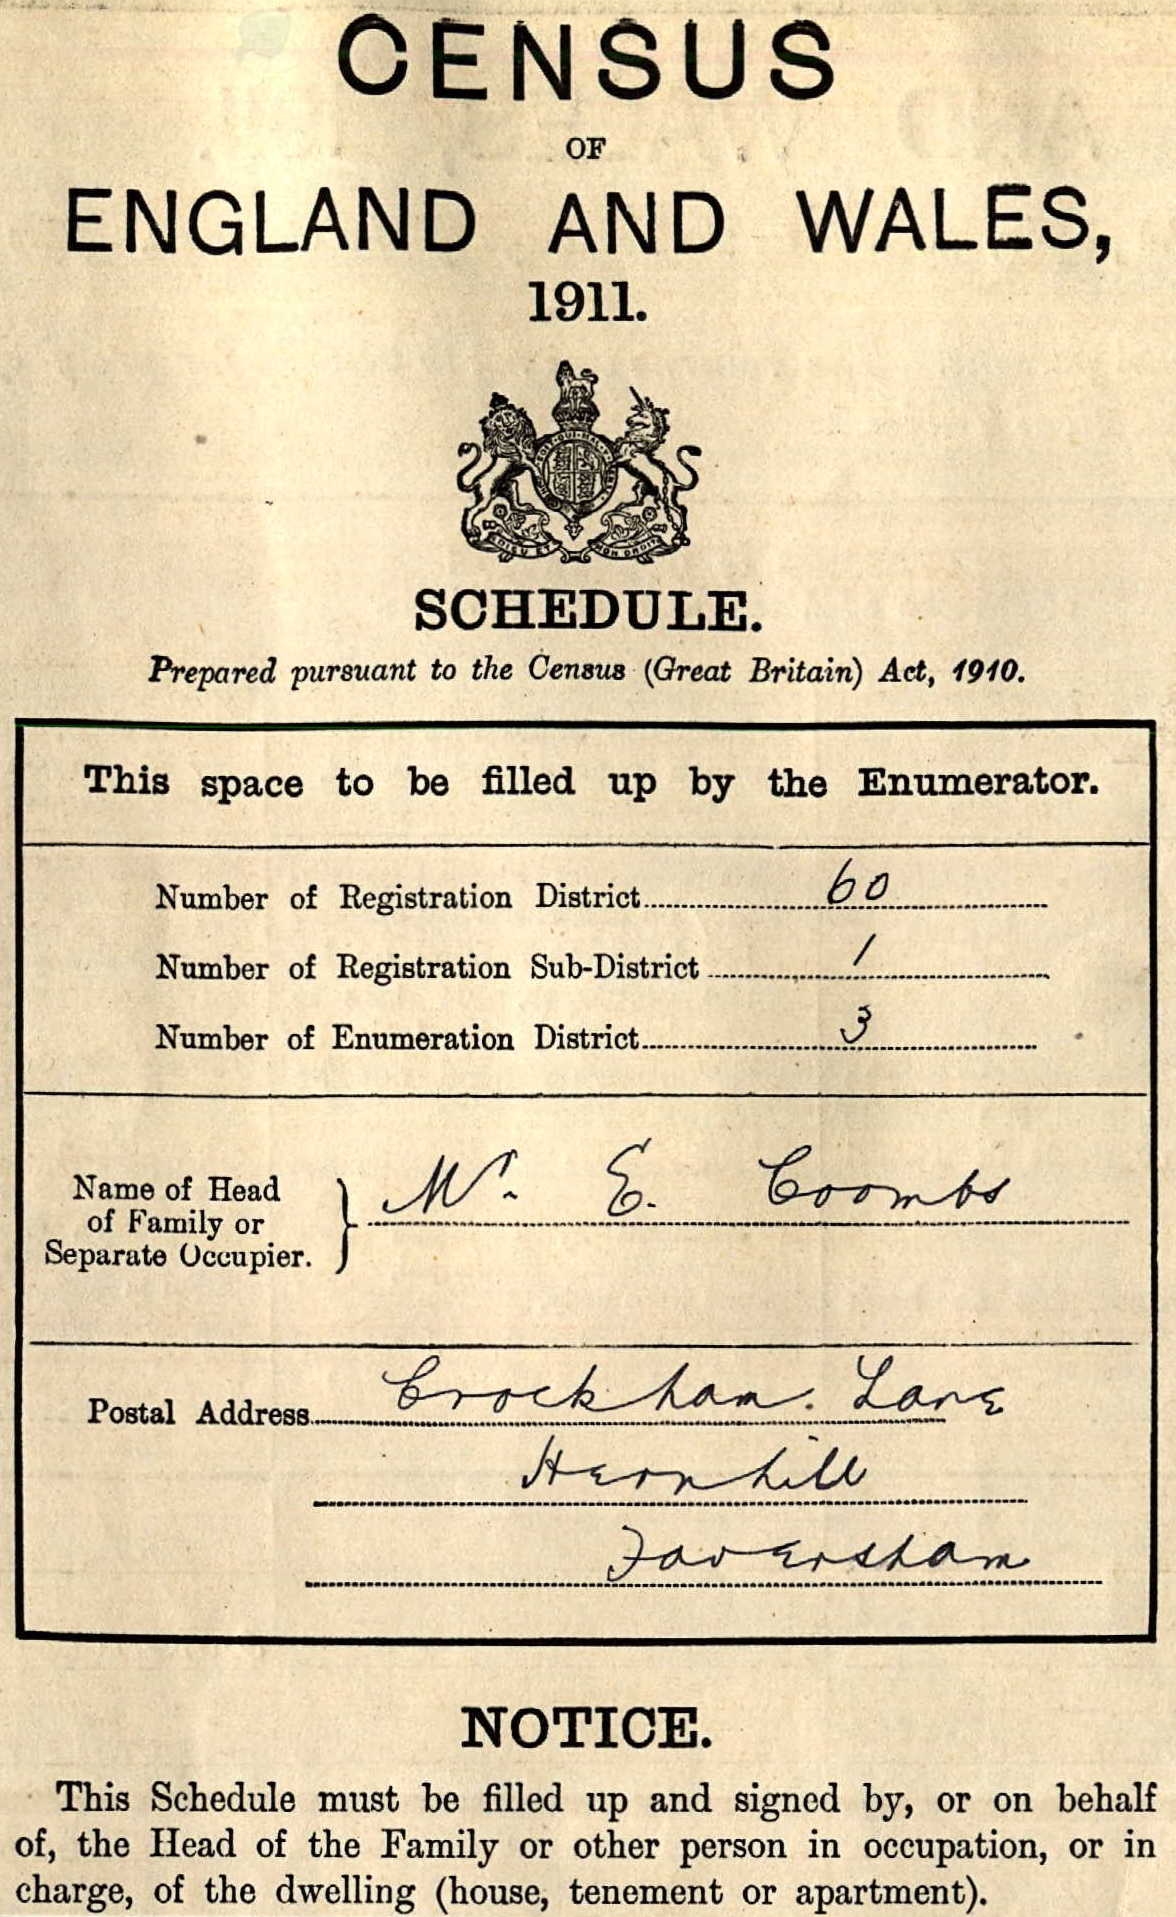 CENSUS
OF
ENGLAND AND WALES,
1911.
SCHEDULE.
Prepared pursuant to the Census (Great Britain) Act, 1910.
This space to be filled up by the Enumerator.
Number of Registration District 60
Number of Registration Sub-District 1
Number of Enumeration District 3
Name of Head
of Family or
Separate Occupier. } Mr. E. Coombs
Postal Address Crockham. Lane
Hernhill
Faversham
NOTICE.
This Schedule must be filled up and signed by, or on behalf
of, the Head of the Family or other person in occupation, or in
charge, of the dwelling (house, tenement or apartment).